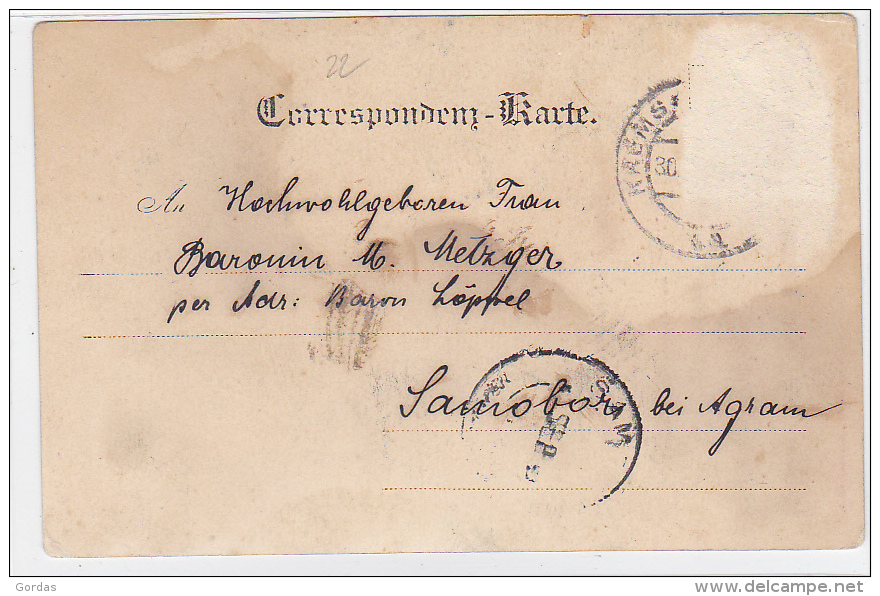 22
Correspondenz-Karte.
KREMS
30
An Hochwohlgeboren Frau
Baronin M. Metzger
per Adr: Baron Löppel
Samóbor bei Agram
SAM
SEP
Gordas
www.delcampe.net